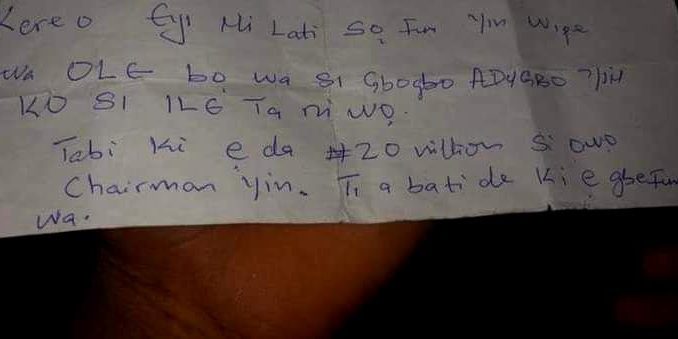 Kere o Eyi Mi Lati Sọ Fun Yin Wipe
Wa OLE bọ wa si Gbogbo ADUGBO Yin
KO SI ILE Ta ni wọ.
Tabi Ki e da #20 million Si owo
Chairman Yin. Ti a bati de Ki e gbe Fun
Wa.